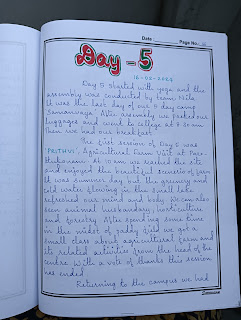 Date
Page No.
Day - 5
16-02-2024
Day 5 started with yoga and the
assembly was conducted by team
It was the last day of our 5 day camp
Samanwaya. After assembly we packed our
luggages and went to college at 8:30am
Then we had our breakfast.
The first session of Day 5 was
'PRITHVI', Agricultural Farm Visit at
At 10 am we reached the site
and enjoyed the beautiful sceneries of farm
It was sunny day but the greenery and
cold water flowing in the small lake
refreshed our mind and body. We can also
seen animal husbandary, horticulture
and forestry. After spending some time
in the midst of paddy field we got a
small class about agricultural farm and
its related activities from the head of the
centre. With a vote of thanks this session
has ended.
Returning to the campus we had